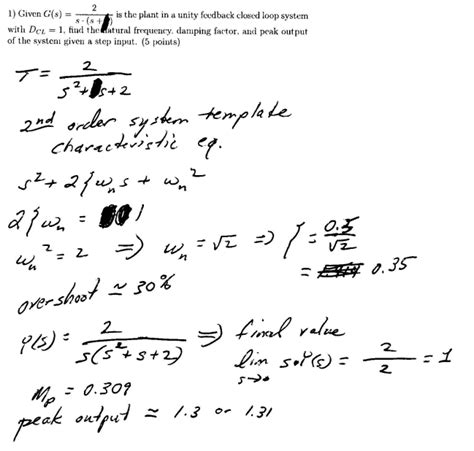 1) Given G(s) = 2 / s·(s + ) is the plant in a unity feedback closed loop system
with D_CL = 1, find the natural frequency, damping factor, and peak output
of the system given a step input. (5 points)
T = 2 / s² + s + 2
2nd order system template
characteristic eq.
s² + 2ζω_n s + ω_n²
2ζω_n = 1
ω_n² = 2 ⇒ ω_n = √2 ⇒ ζ = 0.5 / √2
= 0.35
overshoot ≃ 30%
Y(s) = 2 / s(s² + s + 2) ⇒ final value
lim s→0 s·Y(s) = 2 / 2 = 1
M_p = 0.309
peak output ≃ 1.3 or 1.31